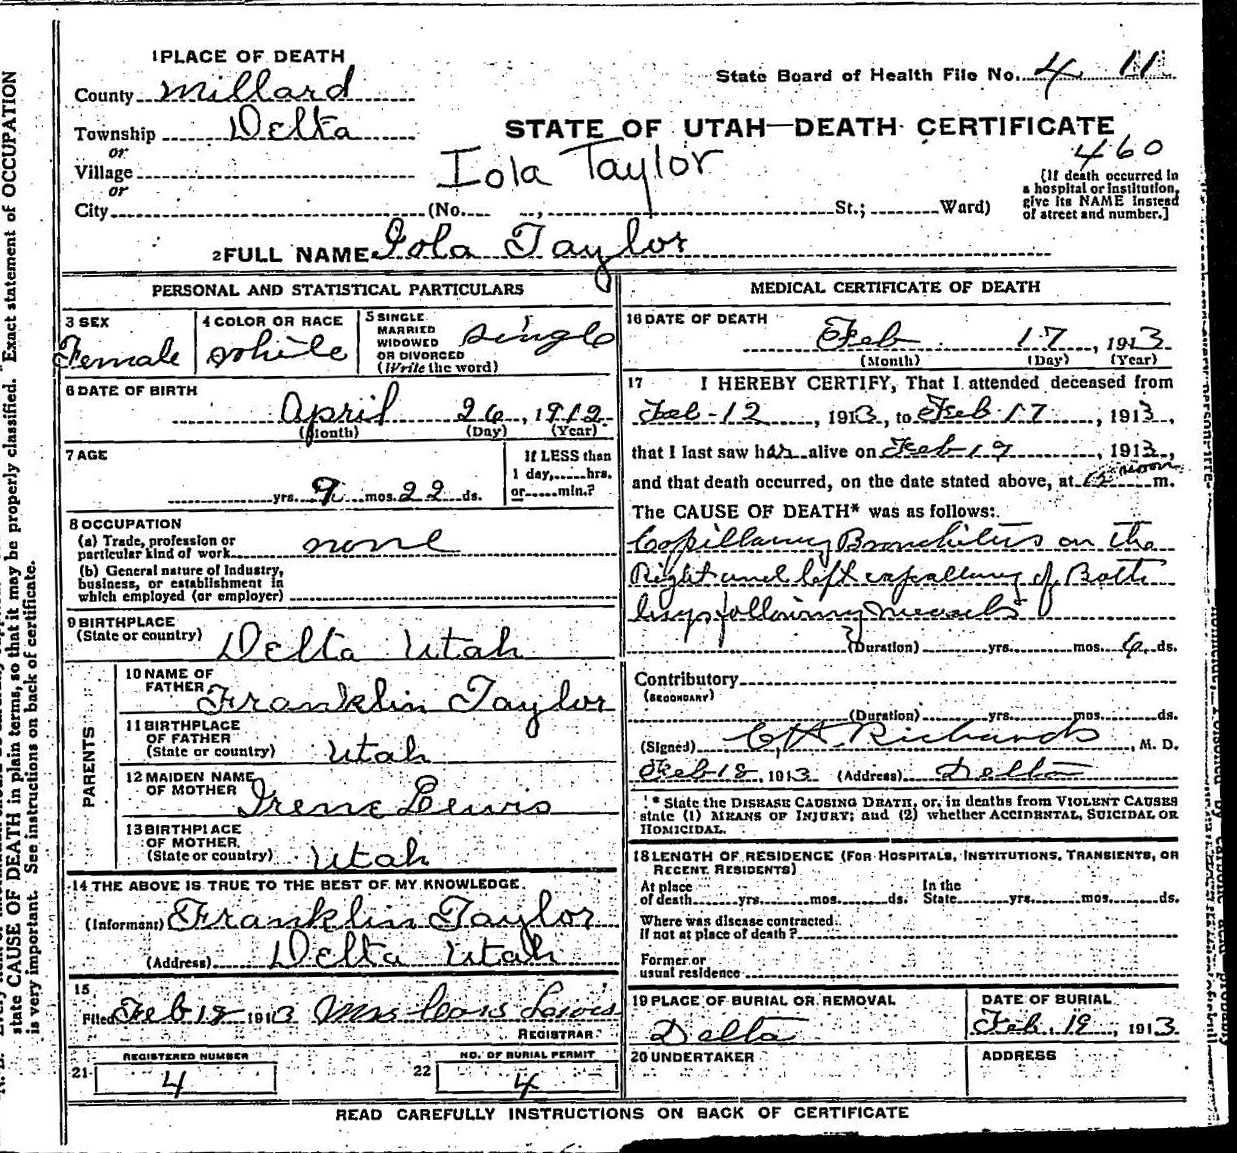 1 PLACE OF DEATH
State Board of Health File No. 4 11
County Millard
Township Delta
STATE OF UTAH—DEATH CERTIFICATE
or
Village
Iola Taylor
460
or
[If death occurred in
a hospital or institution,
give its NAME instead
of street and number.]
City (No. , St.; Ward)
2 FULL NAME Iola Taylor
PERSONAL AND STATISTICAL PARTICULARS
3 SEX
Female
4 COLOR OR RACE
White
5 SINGLE
MARRIED
WIDOWED
OR DIVORCED
(Write the word)
Single
6 DATE OF BIRTH
April 26, 1912
(Month) (Day) (Year)
7 AGE
yrs. 9 mos. 22 ds.
If LESS than
1 day, hrs.
or min.?
8 OCCUPATION
(a) Trade, profession or
particular kind of work none
(b) General nature of industry,
business, or establishment in
which employed (or employer)
9 BIRTHPLACE
(State or country) Delta Utah
PARENTS
10 NAME OF
FATHER Franklin Taylor
11 BIRTHPLACE
OF FATHER
(State or country) Utah
12 MAIDEN NAME
OF MOTHER Irene Lewis
13 BIRTHPLACE
OF MOTHER
(State or country) Utah
14 THE ABOVE IS TRUE TO THE BEST OF MY KNOWLEDGE.
(Informant) Franklin Taylor
(Address) Delta Utah
15
Filed Feb 18 1913 Mrs Lewis
REGISTRAR
REGISTERED NUMBER
21 4
NO. OF BURIAL PERMIT
22 4
MEDICAL CERTIFICATE OF DEATH
16 DATE OF DEATH
Feb 17, 1913
(Month) (Day) (Year)
17 I HEREBY CERTIFY, That I attended deceased from
Feb-12, 1913, to Feb-17, 1913,
that I last saw her alive on Feb-17, 1913,
and that death occurred, on the date stated above, at 12 noon m.
The CAUSE OF DEATH* was as follows:
Capillary Bronchitis on the
Right and left capallary of Both
lungs following measels
(Duration) yrs. mos. 6 ds.
Contributory
(SECONDARY)
(Duration) yrs. mos. ds.
(Signed) C H Richards, M. D.
Feb-18, 1913 (Address) Delta
* State the DISEASE CAUSING DEATH, or, in deaths from VIOLENT CAUSES
state (1) MEANS OF INJURY; and (2) whether ACCIDENTAL, SUICIDAL OR
HOMICIDAL.
18 LENGTH OF RESIDENCE (FOR HOSPITALS, INSTITUTIONS, TRANSIENTS, OR
RECENT RESIDENTS)
At place
of death yrs. mos. ds.
In the
State yrs. mos. ds.
Where was disease contracted
if not at place of death?
Former or
usual residence
19 PLACE OF BURIAL OR REMOVAL
Delta
DATE OF BURIAL
Feb. 19, 1913
20 UNDERTAKER
ADDRESS
READ CAREFULLY INSTRUCTIONS ON BACK OF CERTIFICATE
state CAUSE OF DEATH in plain terms, so that it may be properly classified. Exact statement of OCCUPATION
is very important. See instructions on back of certificate.